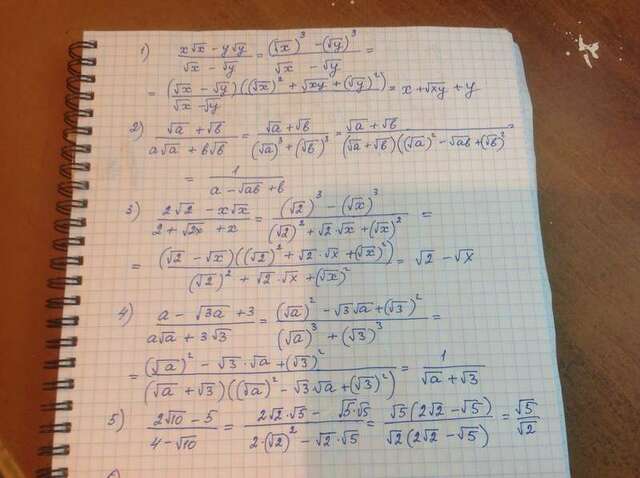 1) (x√x - y√y)/(√x - √y) = ((√x)³ - (√y)³)/(√x - √y) =
= ((√x - √y)((√x)² + √xy + (√y)²))/(√x - √y) = x + √xy + y
2) (√a + √b)/(a√a + b√b) = (√a + √b)/((√a)³ + (√b)³) = (√a + √b)/((√a + √b)((√a)² - √ab + (√b)²) =
= 1/(a - √ab + b)
3) (2√2 - x√x)/(2 + √2x + x) = ((√2)³ - (√x)³)/((√2)² + √2·√x + (√x)²) =
= ((√2 - √x)((√2)² + √2·√x + (√x)²))/((√2)² + √2·√x + (√x)²) = √2 - √x
4) (a - √3a + 3)/(a√a + 3√3) = ((√a)² - √3√a + (√3)²)/((√a)³ + (√3)³) =
= ((√a)² - √3·√a + (√3)²)/((√a + √3)((√a)² - √3√a + (√3)²)) = 1/(√a + √3)
5) (2√10 - 5)/(4 - √10) = (2√2·√5 - √5·√5)/(2·(√2)² - √2·√5) = (√5(2√2 - √5))/(√2(2√2 - √5)) = √5/√2